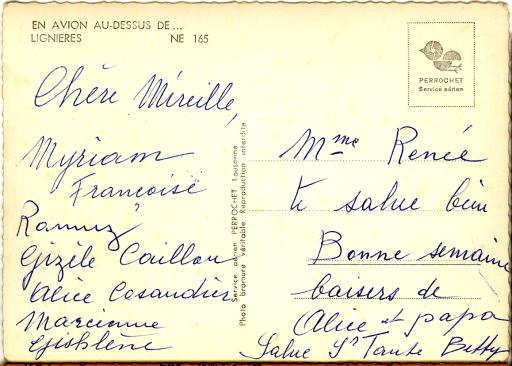 EN AVION AU-DESSUS DE ...
LIGNIERES NE 165
PERROCHET
Service aérien
Chère Mireille,
Myriam
Françoise
Ramuz
Gizèle Caillou
Alice Cosandier
Marcienne
Gishlène
Service aérien PERROCHET Lausanne
Photo bromure véritable Reproduction interdite
Mme Renée
te salue bien
Bonne semaine
baisers de
Alice et papa
Salue Tante Betty